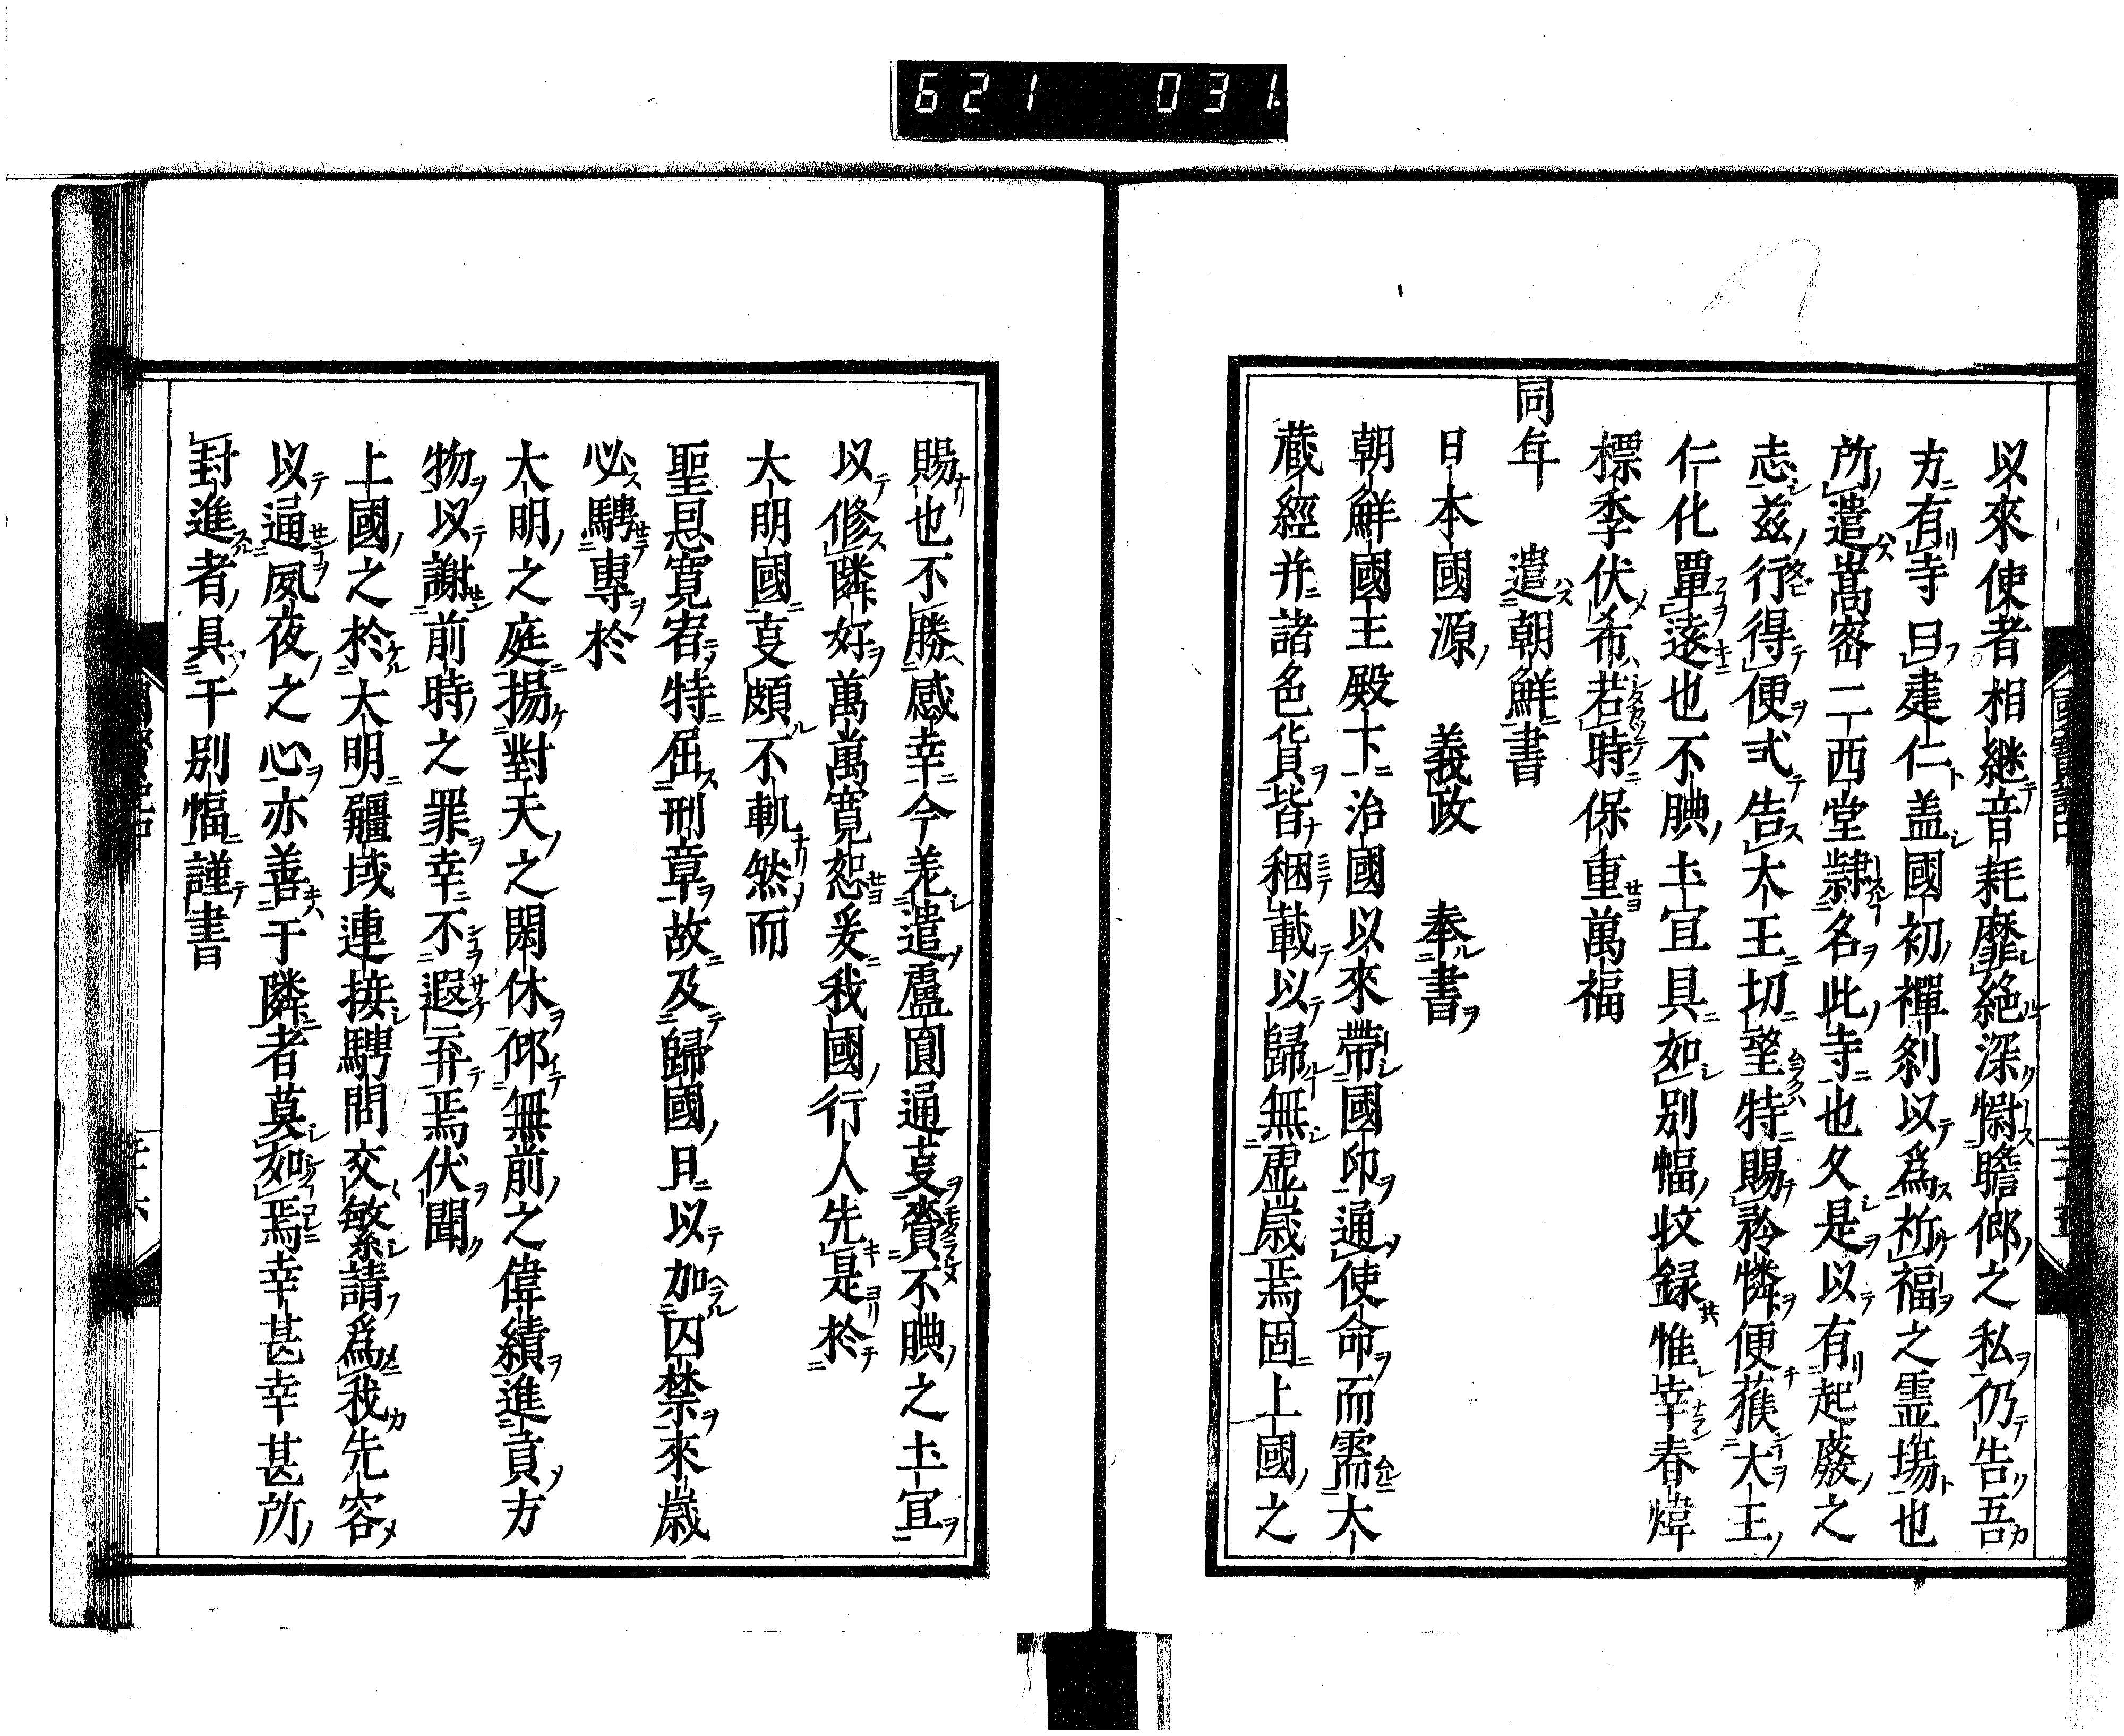 621 031
以來使者相継音耗靡絶深慰瞻仰之私仍告吾
方有寺曰建仁盖國初禪刹以爲祈福之霊塲也
所遣嵩宻二西堂隷名此寺也久是以有起廢之
志茲行得便弐告大王切望特賜矜憐便蕉大王
仁化覃逺也不腆土宜具如别幅收録惟幸春煒
標季伏希若時保重萬福
同年 遣朝鮮書
日本國源 義政 奉書
朝鮮國王殿下治國以來帶國印通使命而需大
蔵經并諸色貨皆稛載以歸無虚歳焉固上國之
賜也不勝感幸今差遣盧圎通叓賫不腆之土宜
以修隣好萬萬寛恕爰我國行人先是於
大明國叓頗不軌然而
聖恩寛宥特屈刑章故及歸國且以加囚禁來歳
必騁專於
大明之庭揚對天之閎休仰無前之偉績進貢方
物以謝前時之罪幸不遐弃焉伏聞
上國之於大明疆域連接騁問交繁請爲我先容
以通夙夜之心亦善于隣者莫如焉幸甚幸甚所
封進者具于别幅謹書